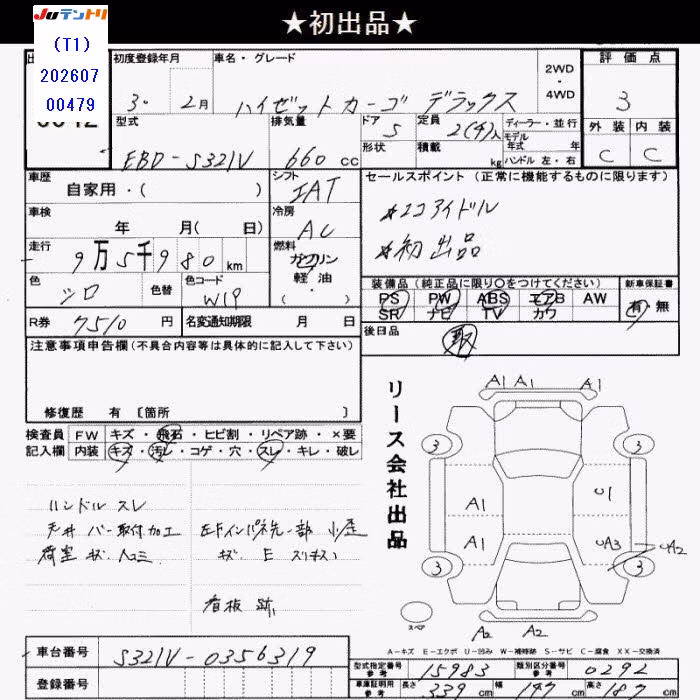 Juテントリ
(T1)
202607
00479
★初出品★
初度登録年月
車名・グレード
2WD
・
4WD
評価点
30 2月
ハイゼットカーゴ デラックス
3
型式
排気量
ドア 5
定員 2(4)人
ディーラー・並行
モデル
年式 年
外装 内装
EBD-S321V
660 cc
形状
積載 kg
ハンドル 左・右
C C
車歴
自家用・( )
シフト
IAT
セールスポイント(正常に機能するものに限ります)
車検
年 月( 日)
冷房
AC
★エコアイドル
★初出品
走行
9万5千980 km
燃料
ガソリン
軽・油
・
色
シロ
色替
色コード
W19
装備品(純正品に限り○をつけてください)
新車保証書
PS PW ABS エアB AW
SR ナビ TV カワ
有・無
R券 7510 円
名変通知期限 月 日
後日品
取
注意事項申告欄(不具合内容等は具体的に記入して下さい)
修復歴 有 [箇所 ]
検査員
記入欄
FW キズ・飛石・ヒビ割・リペア跡・×要
内装 キズ・汚レ・コゲ・穴・スレ・キレ・破レ
リース会社出品
A1 A1 A1
3 3
A1 U1
A1 UA3 UA2
3 3
A2 A2
スペア
ハンドル スレ
天井 バー取付加工
荷室 キズ 凹ミ
左Fインパネ先一部 小歪
キズ E ズリキズ
看板跡
A-キズ E-エクボ U-凹み W-補修跡 S-サビ C-腐食 XX-交換済
車台番号 S321V-0356319
登録番号
型式指定番号
参考
15983
類別区分番号
参考
0292
車庫証明用
参考
長さ 339 cm 幅 147 cm 高さ 187 cm